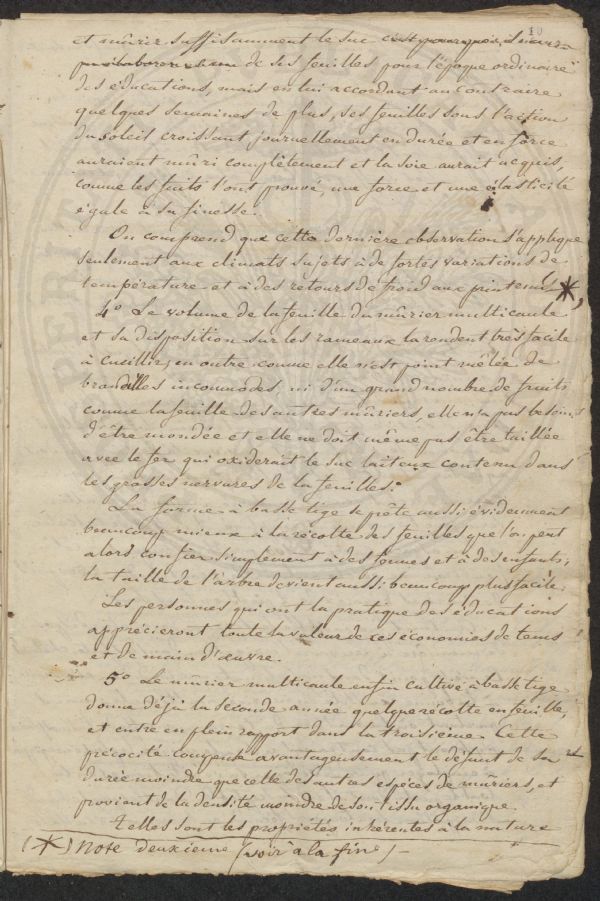 10
et mûrir suffisamment le suc c'est pourquoi, il n'aura
de ses feuilles pour l'époque ordinaire
des éducations, mais en lui accordant au contraire
quelques semaines de plus, ses feuilles sous l'action
du soleil croissant journellement en durée et en force
auraient mûri complêtement et la soie aurait acquis,
comme les faits l'ont prouvé, une force et une élasticité
égale à sa finesse.
On comprend que cette dernière observation s'applique
seulement aux climats sujets à de fortes variations de
température et à des retours de froid aux printems (*)
4º Le volume de la feuille du mûrier multicaule
et sa disposition sur les rameaux la rendent très facile
à cueillir; en outre comme elle n'est point mêlée de
brindilles incommodes, ni d'un grand nombre de fruits
comme la feuille des autres mûriers, elle n'a pas besoin
d'être mondée et elle ne doit même pas être taillée
avec le fer qui oxiderait le suc laiteux contenu dans
les grosses nervures de la feuilles.
La forme à basse tige se prête aussi évidemment
beaucoup mieux à la récolte des feuilles que l'on peut
alors confier simplement à des femmes et à des enfants;
la taille de l'arbre devient aussi beaucoup plus facile
Les personnes qui ont la pratique des éducations
apprécieront toute la valeur de ces économies de tems
et de main d'œuvre.
5º Le mûrier multicaule enfin cultivé à basse tige
donne déjà la seconde année quelque récolte en feuille,
et entre en plein rapport dans la troisième. Cette
précocité compense avantageusement le défaut de sa
durée moindre que celle des autres espèces de mûriers, et
provient de la densité moindre de son tissu organique.
Telles sont les propriétés inhérentes à la nature
(*) Note deuxieme (voir à la fin) -